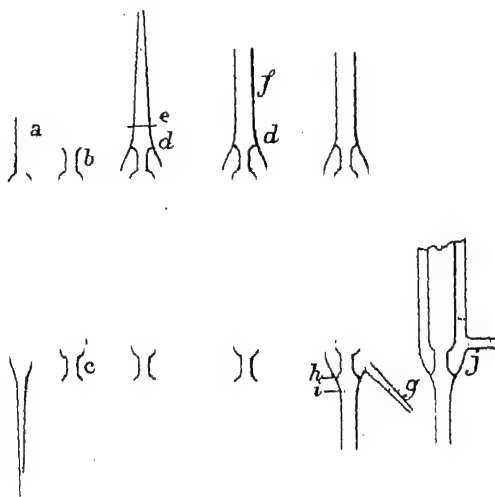 a
b
e
d
f
d
c
h
i
g
j